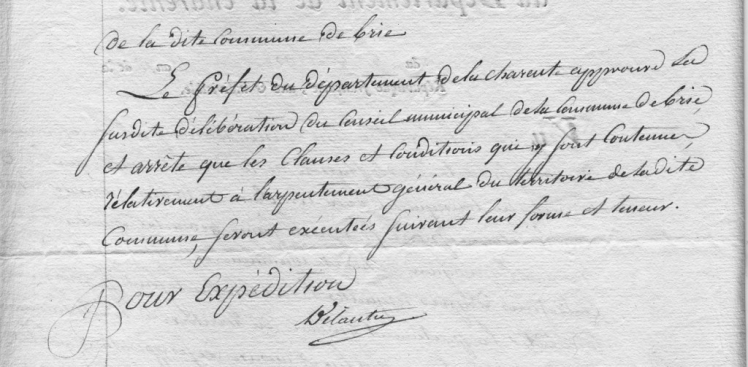 de la dite Commune de brie
Le Préfet du Département de la charente approuve La
susdite délibération du Conseil municipal de la Commune de brie,
et arrête que les Clauses et Conditions qui y sont Contenues,
rélativement à l'arpentement général du territoire de la dite
Commune, seront exécutées suivant leur forme et teneur.
Pour Expédition